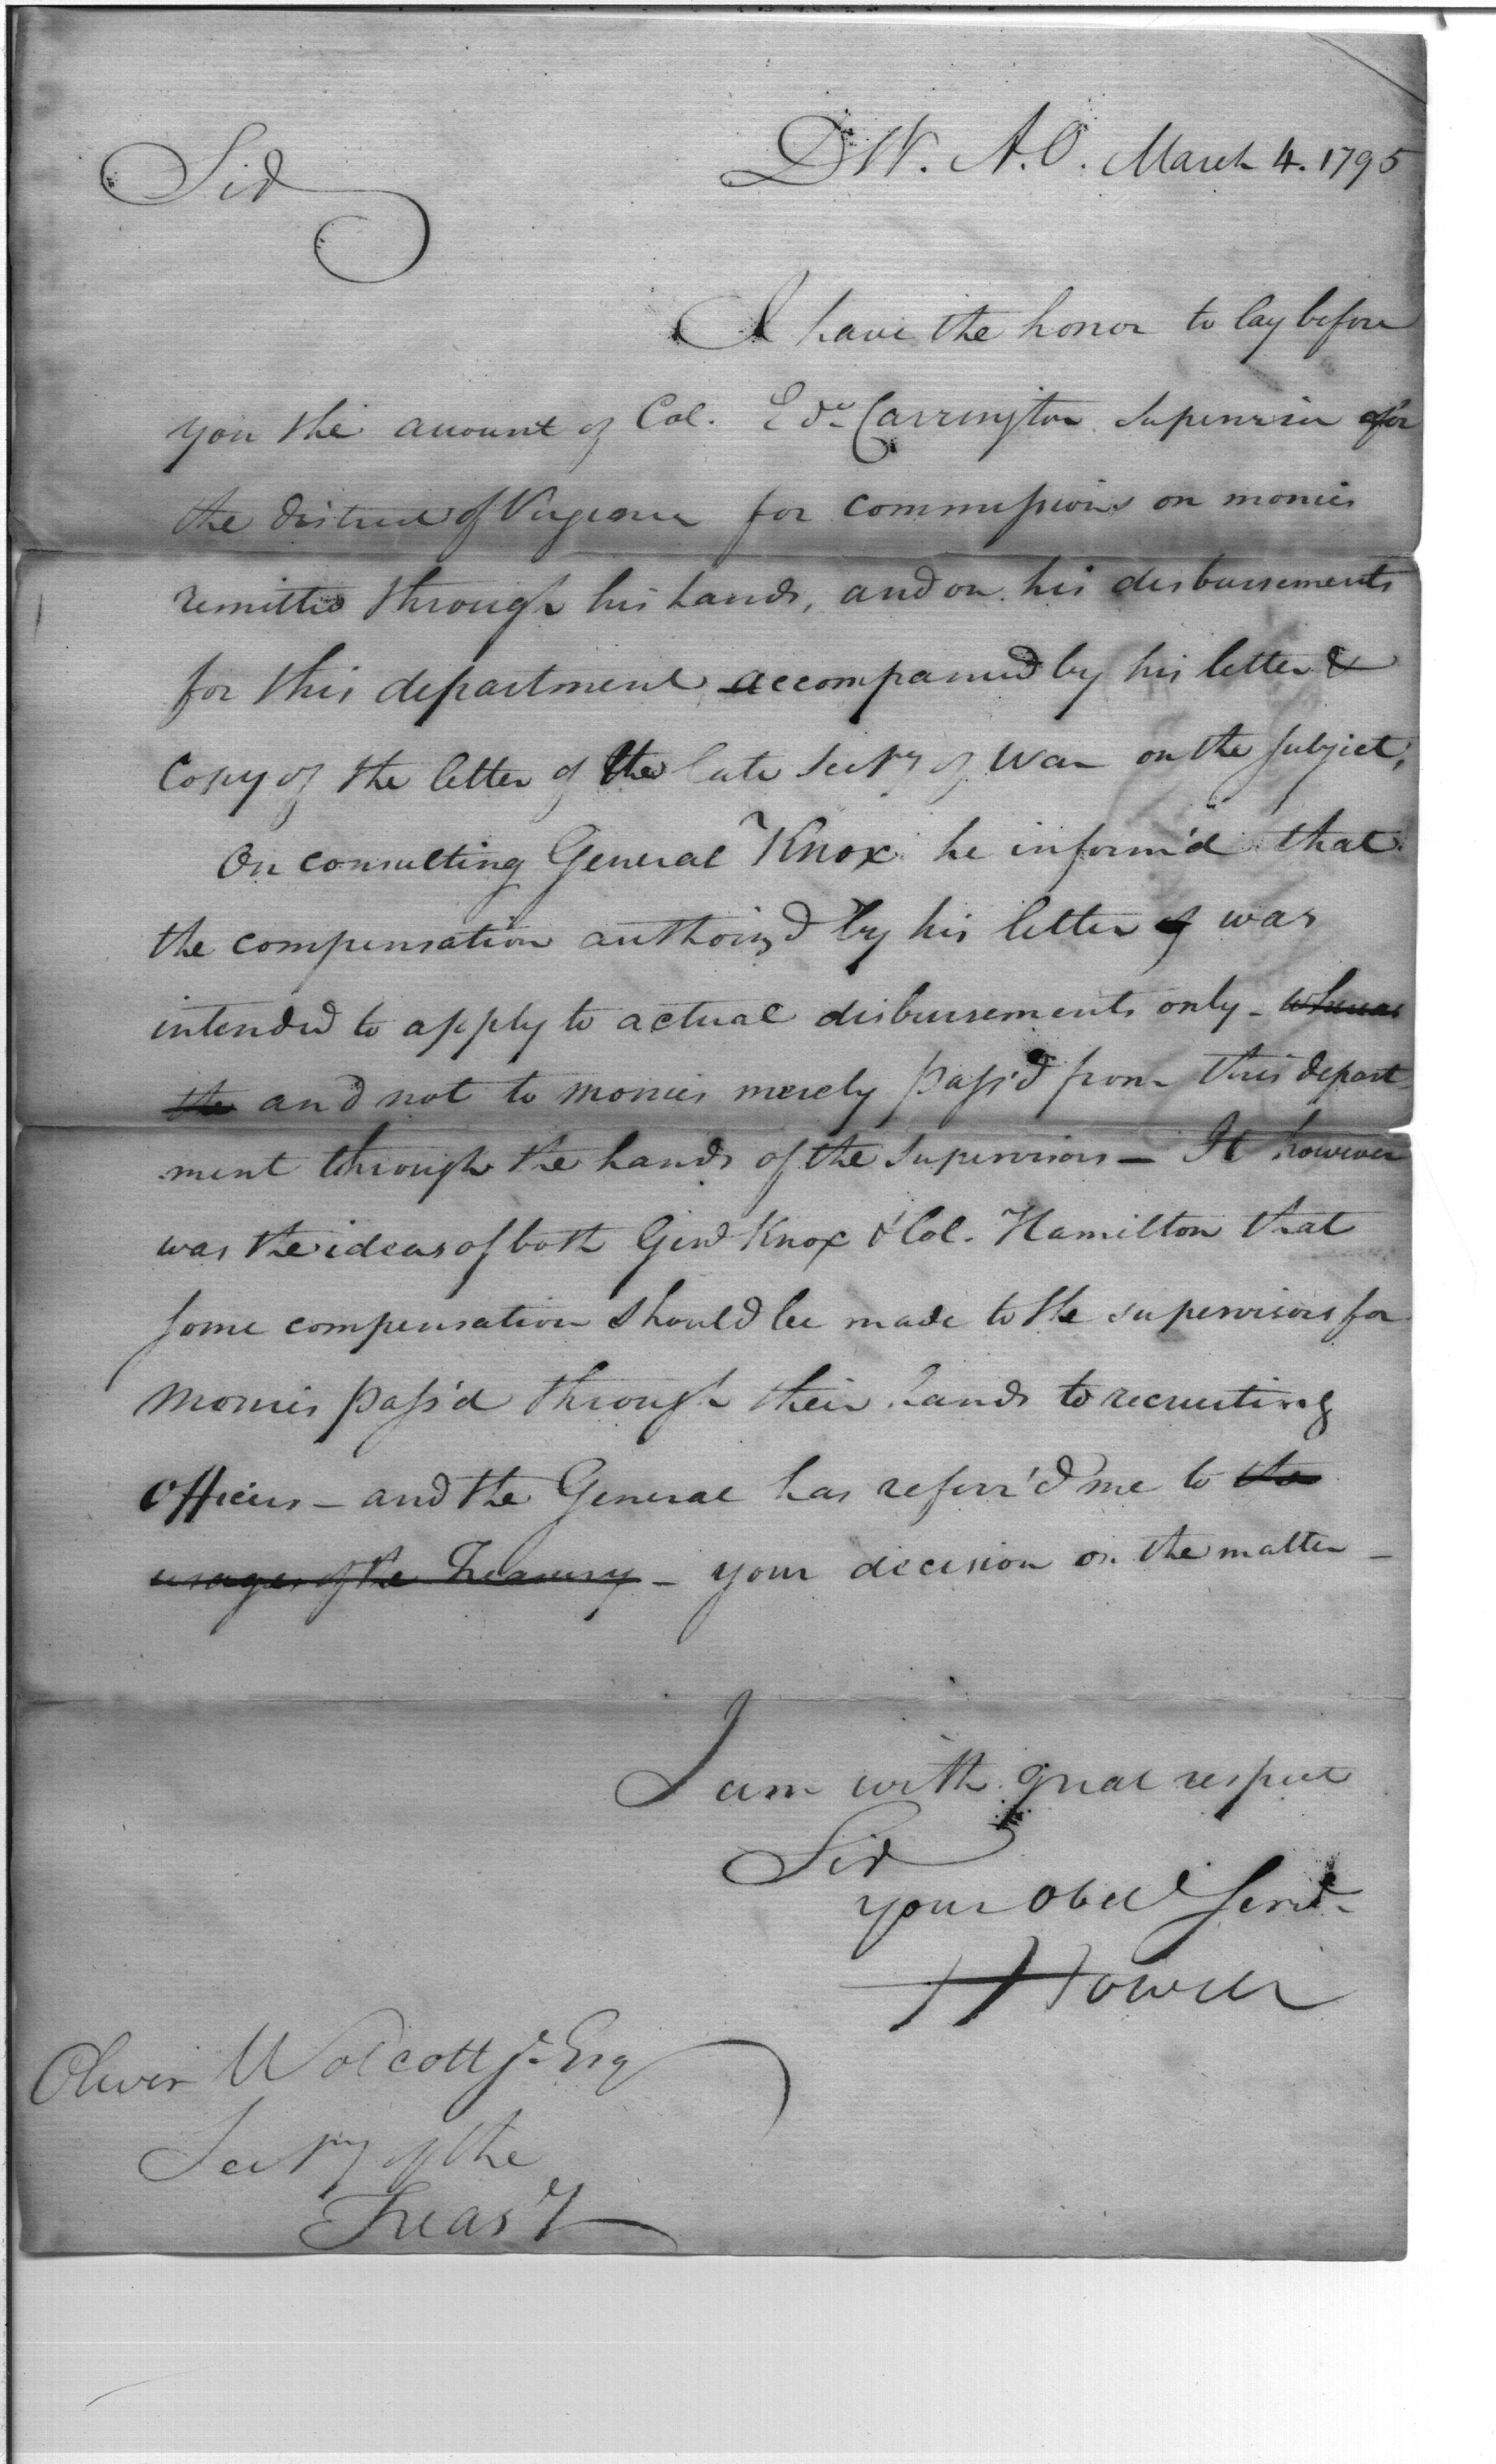 D W. A. O. March 4. 1795
Sir
I have the honor to lay before
you the account of Col. Edd. Carrington Supervisor for
the district of Virginia for commissions on monies
remitted through his hands, and on his disbursements
for this department accompanied by his letter &
Copy of the letter of the late Secty of War on the subject,
On consulting General Knox he inform'd that
the compensation authorized by his letter of was
intended to apply to actual disbursements only - whereas
the and not to monies merely pass'd from this depart
ment through the hands of the Supervisors — It however
was the ideas of both Genl Knox & Col. Hamilton that
some compensation should be made to the supervisors for
monies pass'd through their hands to recruiting
Officers - and the General has referr'd me to the
usages of the Treasury - your decision on the matter -
I am with great respect
Sir
your obed Servt
Howell
Oliver Wolcott Jr Esq
Secty of the
Treasy